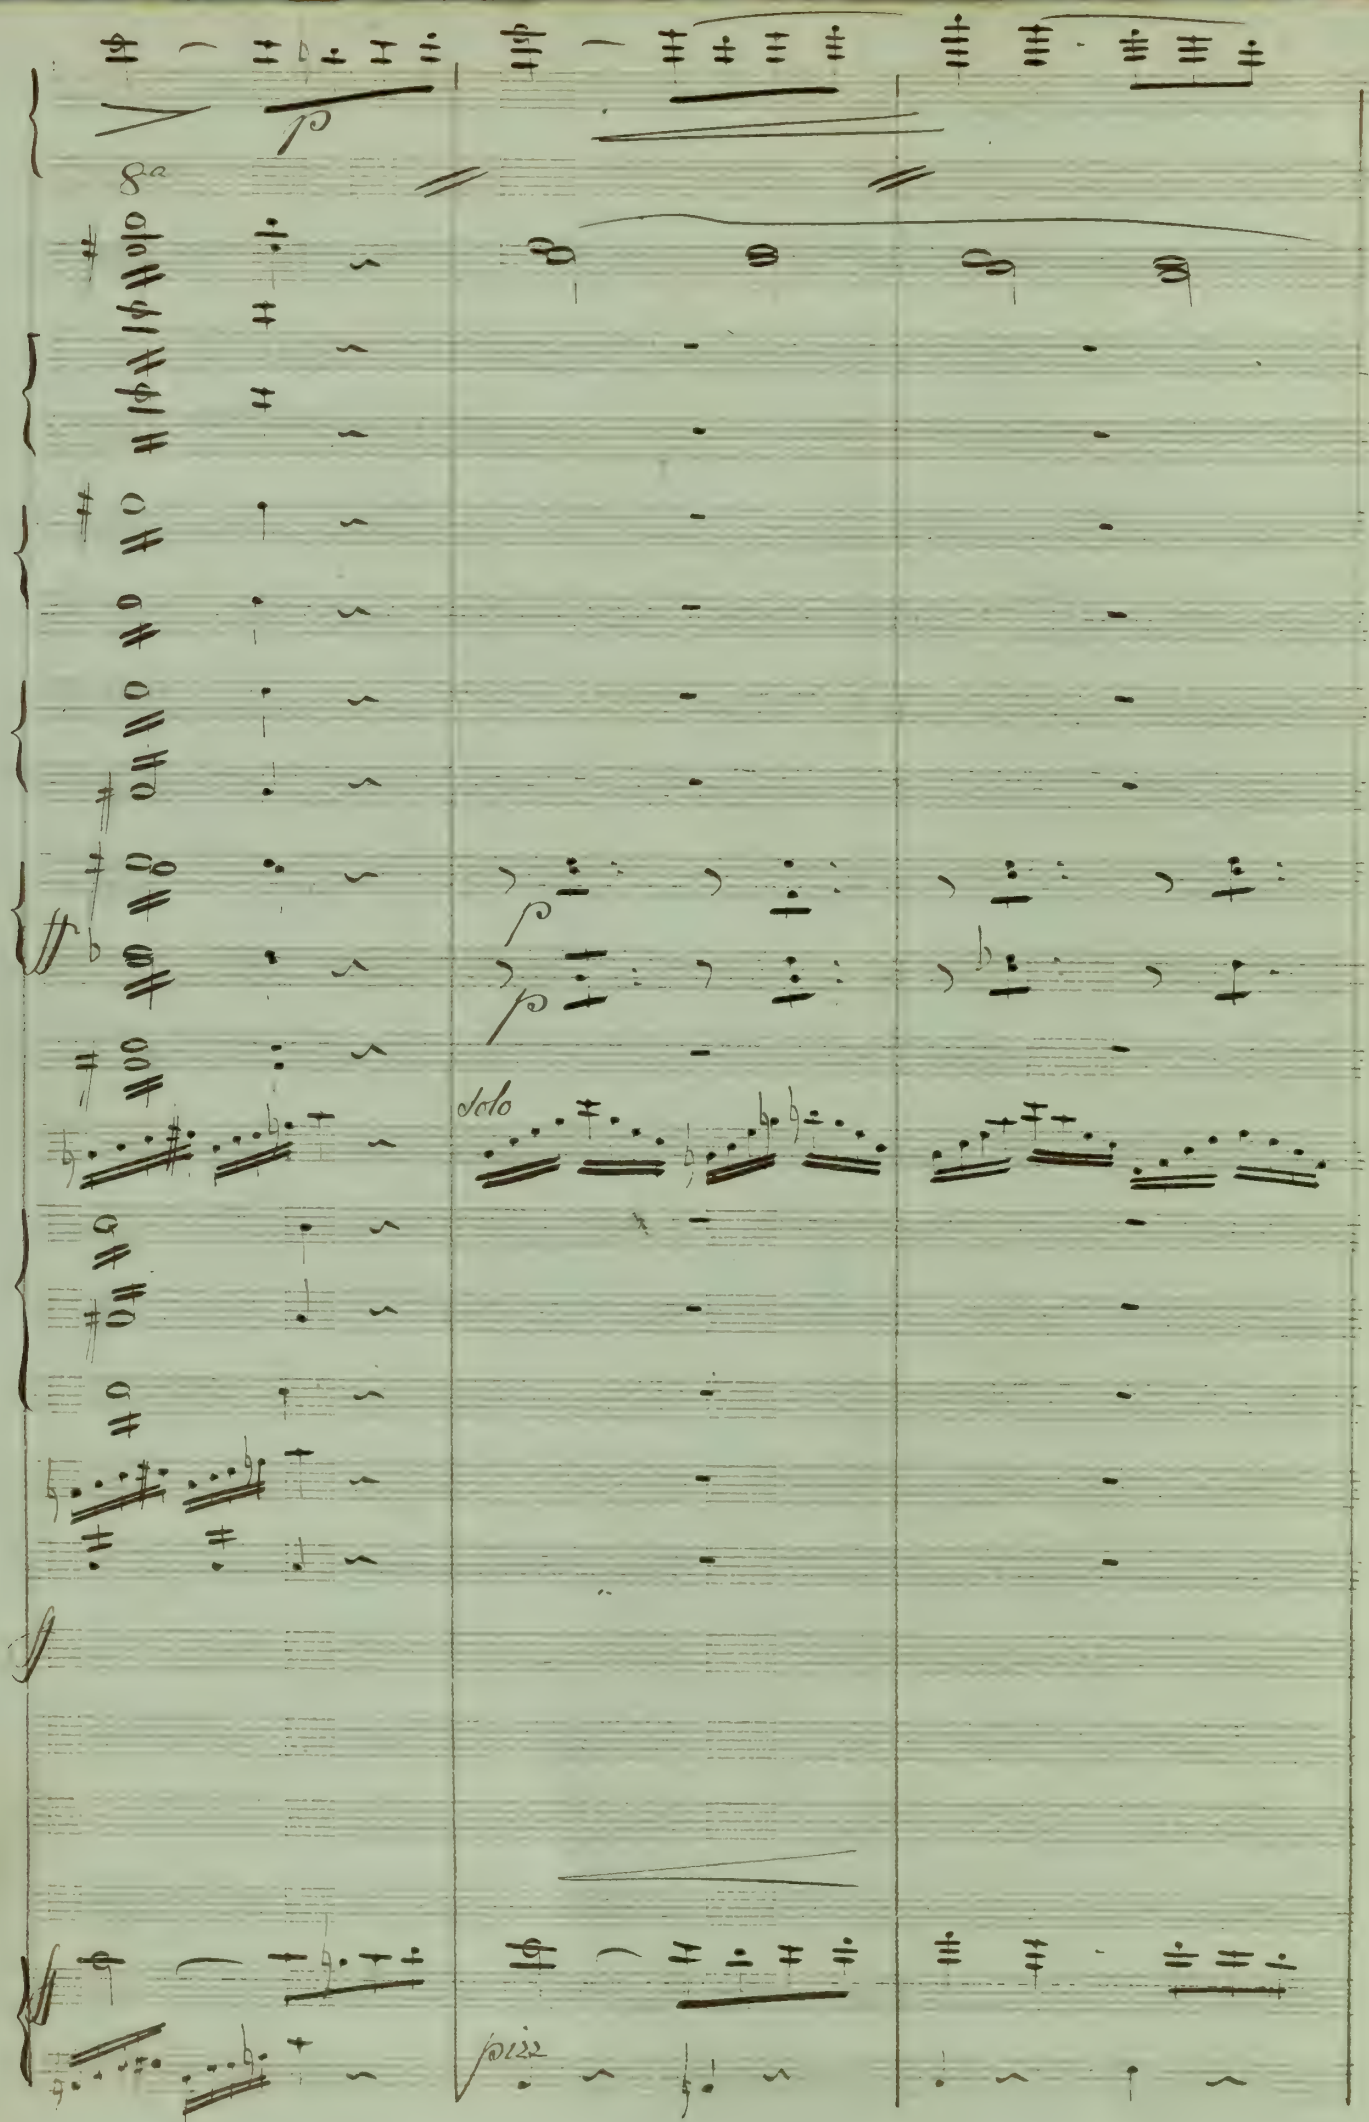 p
8a
p
p
solo
pizz